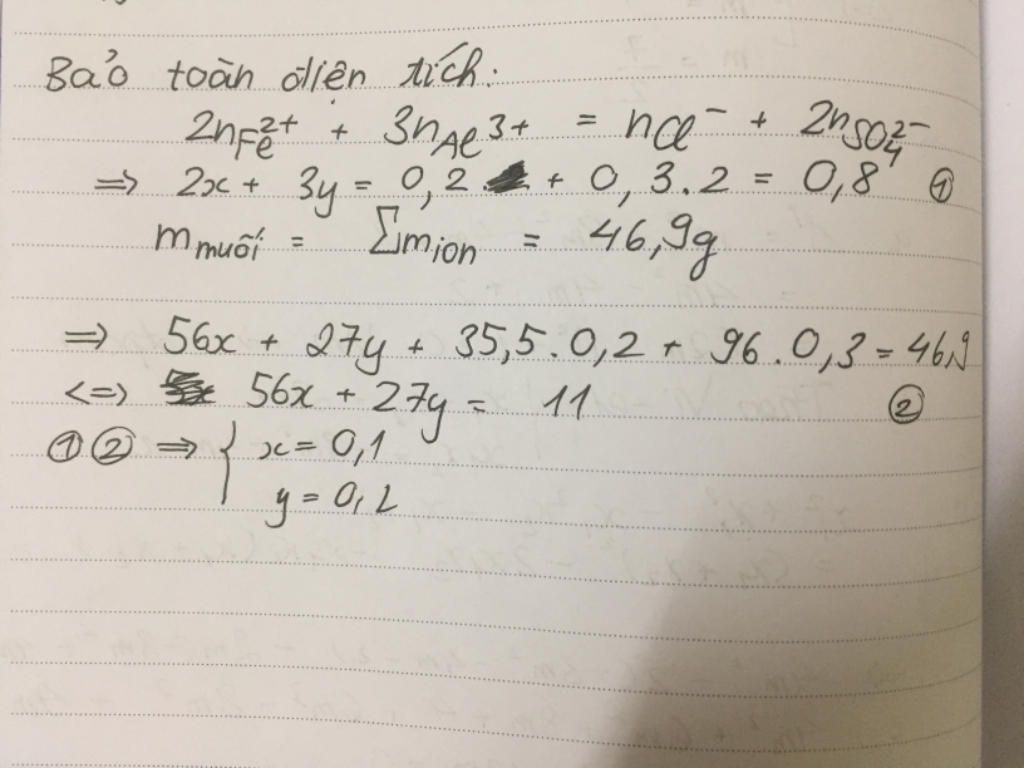 Bảo toàn điện tích:
2nFe²⁺ + 3nAl³⁺ = nCl⁻ + 2nSO₄²⁻
⇒ 2x + 3y = 0,2 + 0,3.2 = 0,8 ①
mmuối = ∑mion = 46,9g
⇒ 56x + 27y + 35,5.0,2 + 96.0,3 = 46,9
<=> 56x + 27y = 11 ②
①② ⇒ { x = 0,1
y = 0,2